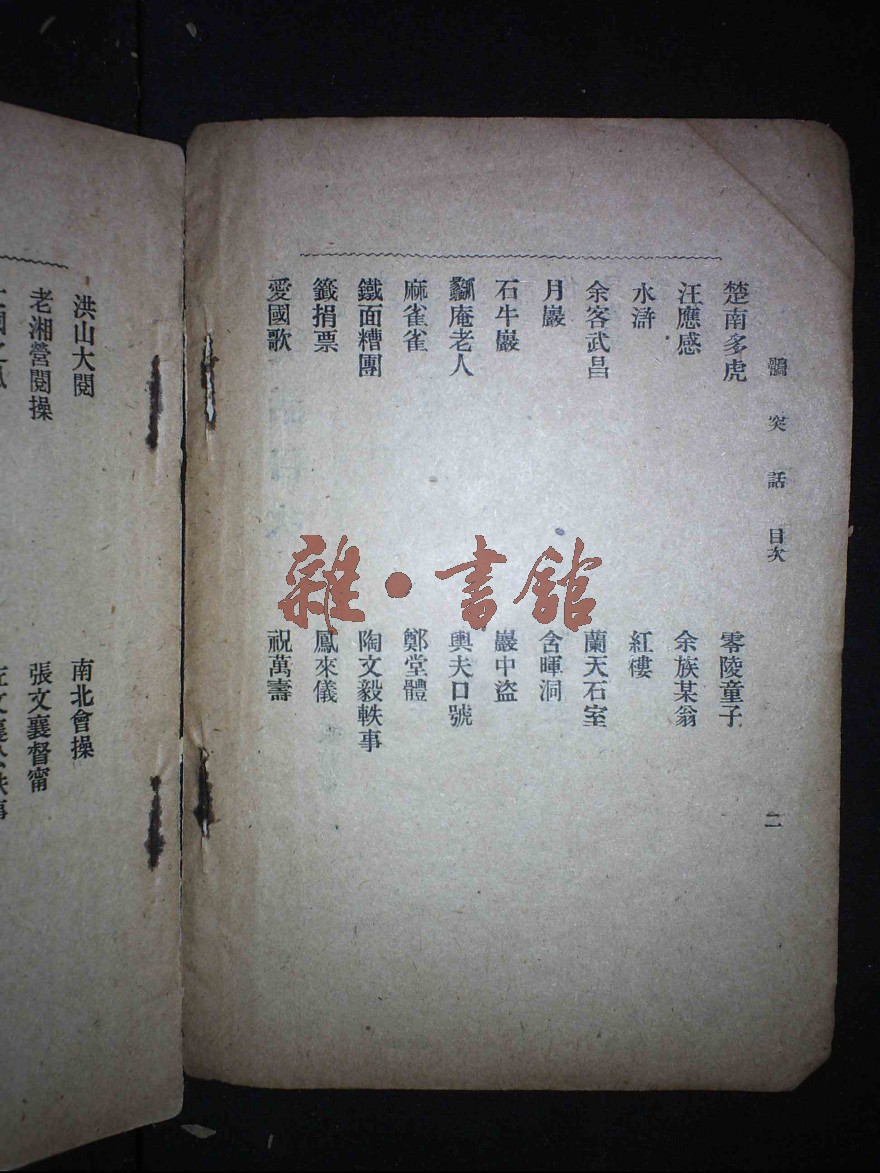 鶻突話 目次 二
楚南多虎 零陵童子
汪應感 余族某翁
水滸 紅樓
余客武昌 蘭天石室
月巖 含暉洞
石牛巖 巖中盜
庵老人 輿夫口號
麻雀雀 鄭堂體
鐵面糟團 陶文毅軼事
籤捐票 鳳來儀
愛國歌 祝萬壽
洪山大閱 南北會操
老湘營閱操 張文襄督甯
雜·書館